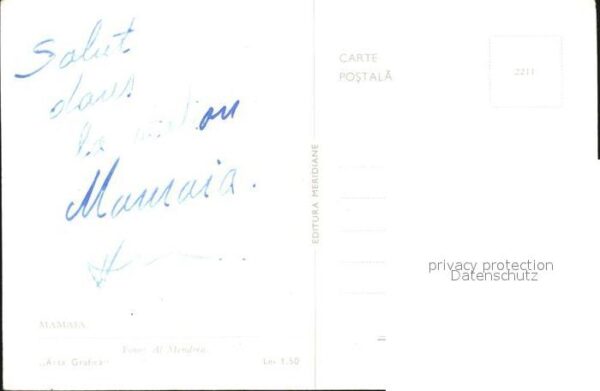 Salut
dans
la station
Mamaia.
CARTE
POȘTALĂ
2211
EDITURA MERIDIANE
privacy protection
Datenschutz
MAMAIA
Foto: Al Mendrea
„Arta Grafică"
Lei 1,50